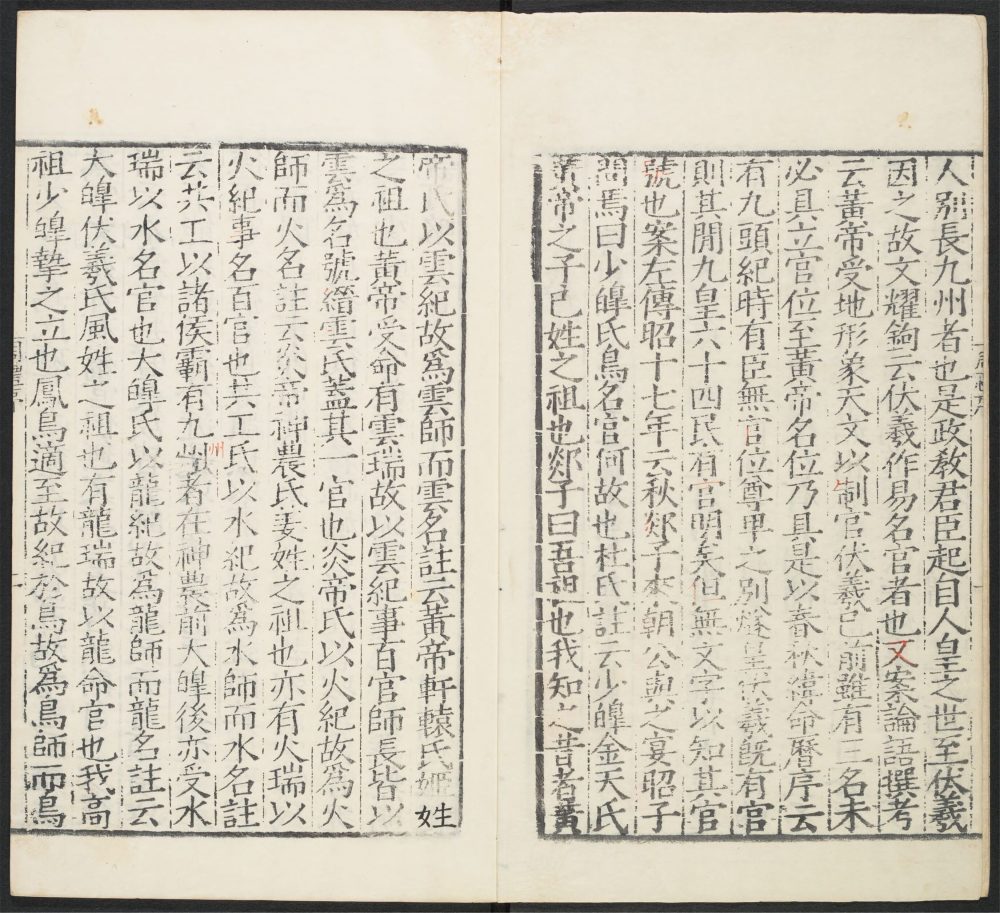 人別長九州者也是政教君臣起自人皇之世至伏羲
因之故文耀鉤云伏羲作易名官者也又案論語撰考
云黃帝受地形象天文以制官伏羲已前雖有三名未
必具立官位至黃帝名位乃具是以春秋緯命曆序云
有九頭紀時有臣無官位尊卑之別燧皇伏羲旣有官
則其閒九皇六十四民有官明矣但無文字以知其官
號也案左傳昭十七年云秋郯子來朝公與之宴昭子
問焉曰少皥氏鳥名官何故也杜氏註云少皥金天氏
黃帝之子己姓之祖也郯子曰吾祖也我知之昔者黃
帝氏以雲紀故爲雲師而雲名註云黃帝軒轅氏姬姓
之祖也黃帝受命有雲瑞故以雲紀事百官師長皆以
雲爲名號縉雲氏蓋其一官也炎帝氏以火紀故爲火
師而火名註云炎帝神農氏姜姓之祖也亦有火瑞以
火紀事名百官也共工氏以水紀故爲水師而水名註
云共工以諸侯霸有九州者在神農前大皥後亦受水
瑞以水名官也大皥氏以龍紀故爲龍師而龍名註云
大皥伏羲氏風姓之祖也有龍瑞故以龍命官也我高
祖少皥摯之立也鳳鳥適至故紀於鳥故爲鳥師而鳥